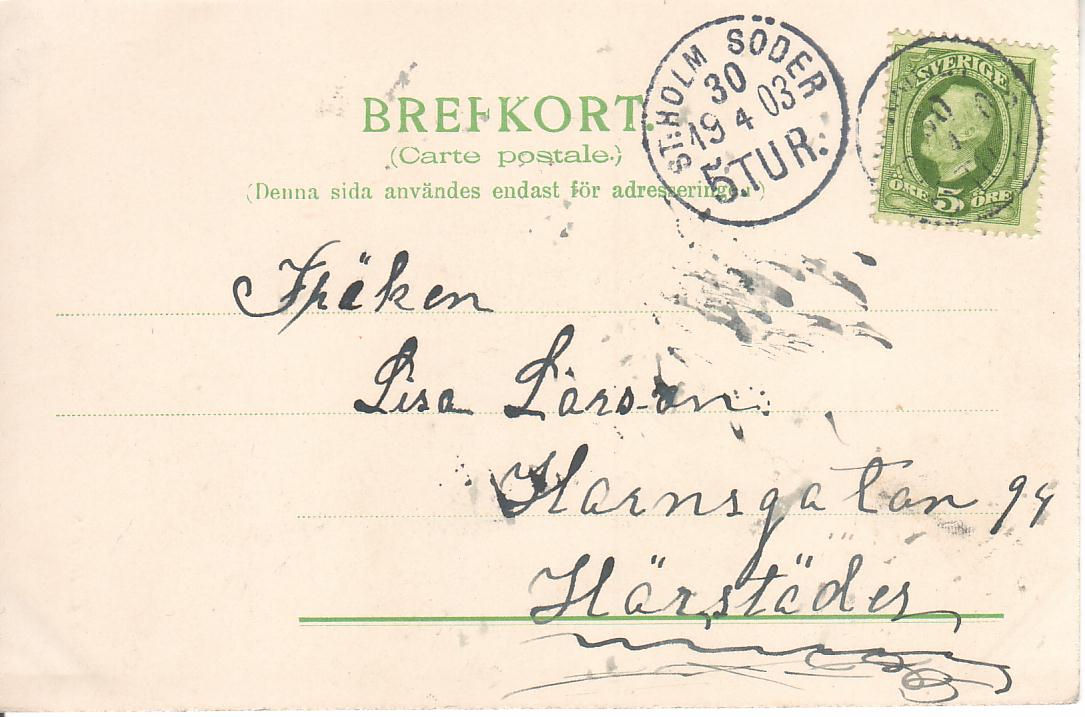 BREFKORT.
(Carte postale.)
(Denna sida användes endast för adressering.)
ST:HOLM SÖDER
30
19 4 03
5.TUR.
SVERIGE
ÖRE 5 ÖRE
Fröken
Lisa Larsson
Hornsgatan 94
Härstädes